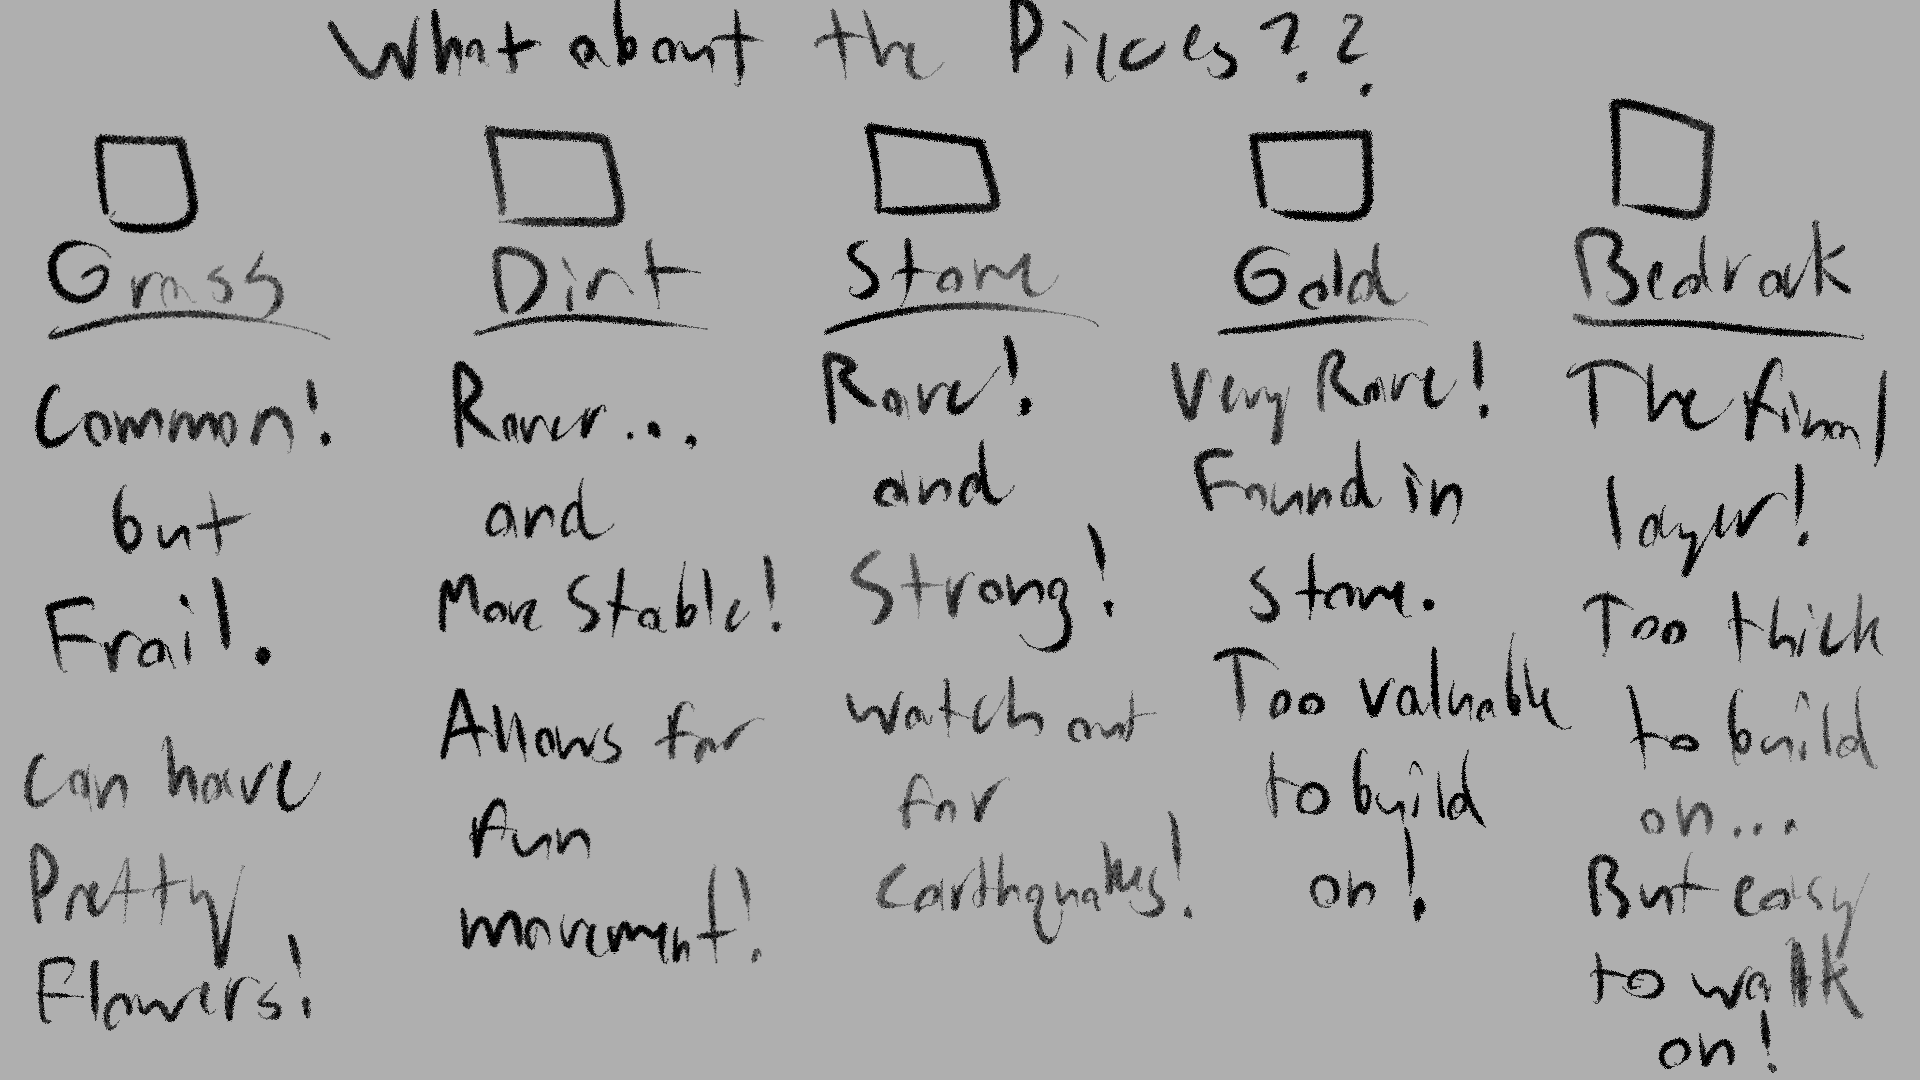 What about the Pieces??
Grass
Common!
but
Frail.
can have
Pretty
Flowers!
Dirt
Rarer...
and
More Stable!
Allows for
fun
movement!
Stone
Rare!
and
Strong!
watch out
for
earthquakes!
Gold
Very Rare!
Found in
Stone.
Too valuable
to build
on!
Bedrock
The final
layer!
Too thick
to build
on...
But easy
to walk
on!